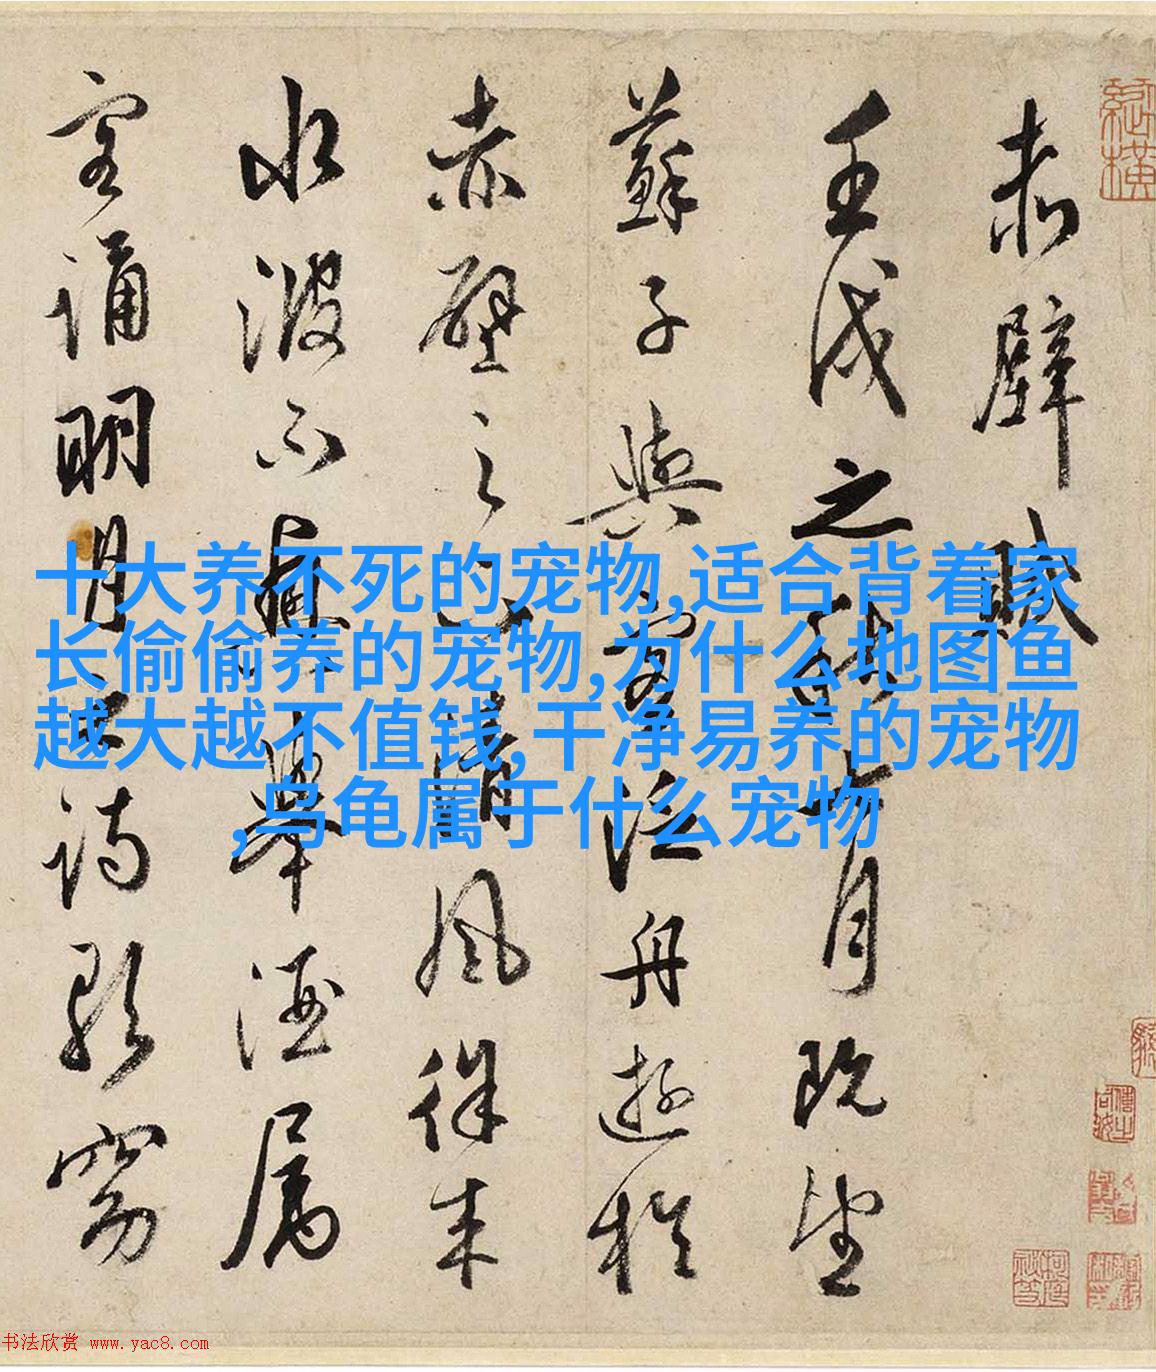 赤壁賦
壬戌之秋七月既望
蘇子與客泛舟遊於
赤壁之下清風徐来
水波不興舉酒属
客誦明月之詩歌窈
十大养不死的宠物,适合背着家
长偷偷养的宠物,为什么地图鱼
越大越不值钱,干净易养的宠物
,乌龟属于什么宠物
书法欣赏 www.yac8.com